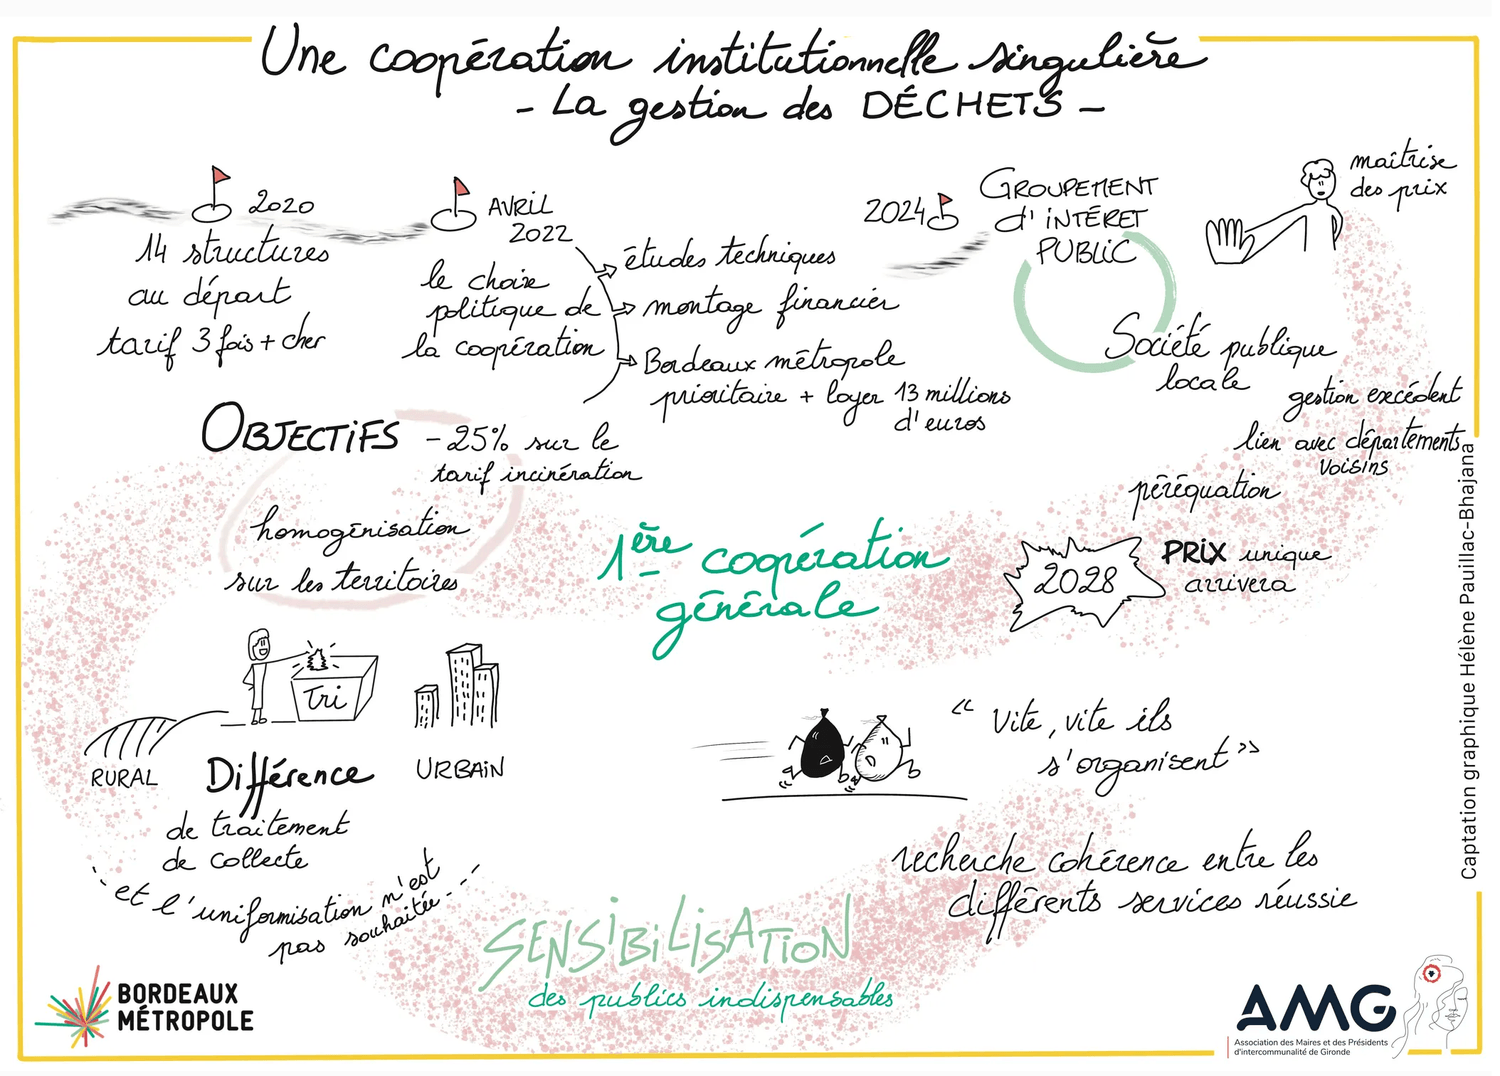 Une coopération institutionnelle singulière
- La gestion des DÉCHETS -
2020
14 structures
au départ
tarif 3 fois + cher
AVRIL
2022
le choix
politique de
la coopération
études techniques
montage financier
Bordeaux métropole
prioritaire + loyer 13 millions
d'euros
2024
GROUPEMENT
d'INTÉRET
PUBLIC
Société publique
locale
maîtrise
des prix
gestion excédent
lien avec départements
voisins
péréquation
OBJECTIFS
- 25% sur le
tarif incinération
homogénisation
sur les territoires
1ère coopération
générale
2028
PRIX unique
arrivera
Tri
RURAL
URBAIN
Différence
de traitement
de collecte
et l'uniformisation n'est
pas souhaitée
« Vite, vite ils
s'organisent »
recherche cohérence entre les
différents services réussie
SENSIBILISATION
des publics indispensables
BORDEAUX
MÉTROPOLE
AMG
Association des Maires et des Présidents
d'intercommunalité de Gironde
Captation graphique Hélène Pauillac-Bhajana